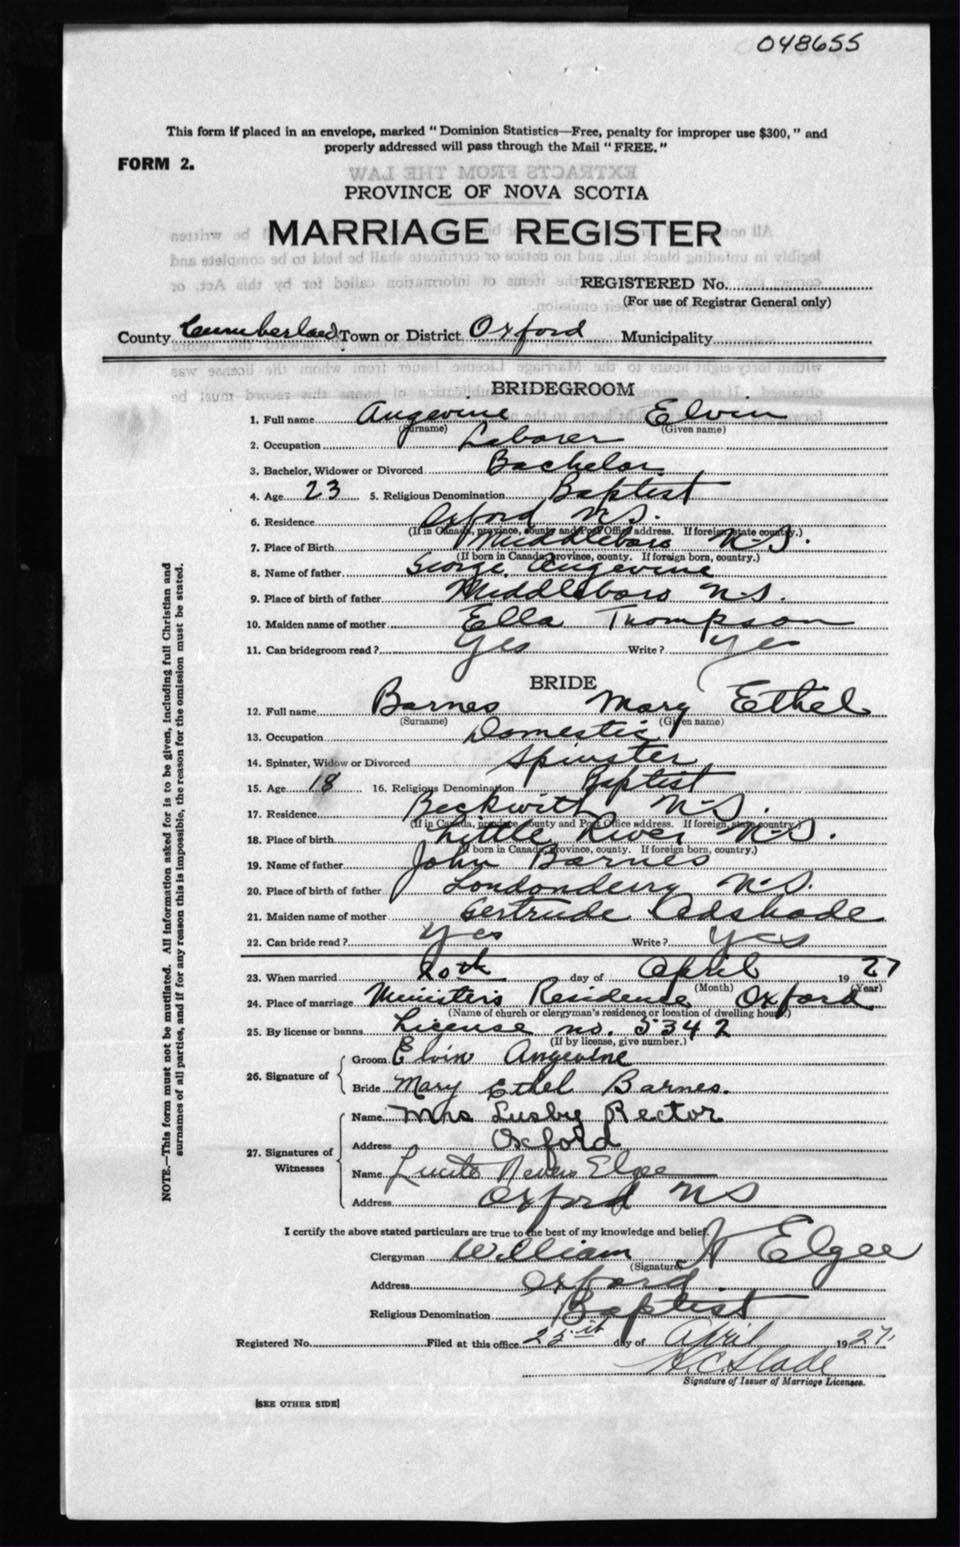 048655
This form if placed in an envelope, marked "Dominion Statistics—Free, penalty for improper use $300," and
properly addressed will pass through the Mail "FREE."
FORM 2.
EXTRACTS FROM THE LAW
PROVINCE OF NOVA SCOTIA
MARRIAGE REGISTER
REGISTERED No.
(For use of Registrar General only)
County Cumberland Town or District Oxford Municipality
BRIDEGROOM
1. Full name Angevine Elvin
(Surname) (Given name)
2. Occupation Laborer
3. Bachelor, Widower or Divorced Bachelor
4. Age 23 5. Religious Denomination Baptist
6. Residence Oxford N.S.
(If in Canada, province, county and Post Office address. If foreign, state country.)
7. Place of Birth Middleboro N.S.
(If born in Canada, province, county. If foreign born, country.)
8. Name of father George Angevine
9. Place of birth of father Middleboro N.S.
10. Maiden name of mother Ella Thompson
11. Can bridegroom read? Yes Write? Yes
BRIDE
12. Full name Barnes Mary Ethel
(Surname) (Given name)
13. Occupation Domestic
14. Spinster, Widow or Divorced Spinster
15. Age 18 16. Religious Denomination Baptist
17. Residence Beckwith N.S.
(If in Canada, province, county and Post Office address. If foreign, state country.)
18. Place of birth Little River N.S.
(If born in Canada, province, county. If foreign born, country.)
19. Name of father John Barnes
20. Place of birth of father Londonderry N.S.
21. Maiden name of mother Gertrude Adshade
22. Can bride read? Yes Write? Yes
23. When married 20th day of April 1927
(Month) (Year)
24. Place of marriage Minister's Residence Oxford
(Name of church or clergyman's residence or location of dwelling house.)
25. By license or banns License no. 5342
(If by license, give number.)
26. Signature of
Groom Elvin Angevine
Bride Mary Ethel Barnes.
27. Signatures of Witnesses
Name Mrs Lusby Rector
Address Oxford
Name Nevers Elgee
Address Oxford NS
I certify the above stated particulars are true to the best of my knowledge and belief.
Clergyman William H Elgee
(Signature)
Address Oxford
Religious Denomination Baptist
Registered No. Filed at this office 25th day of April 1927.
H.C. Slade
Signature of Issuer of Marriage Licenses.
[SEE OTHER SIDE]
NOTE.—This form must not be mutilated. All information asked for is to be given, including full Christian and
surnames of all parties, and if for any reason this is impossible, the reason for the omission must be stated.